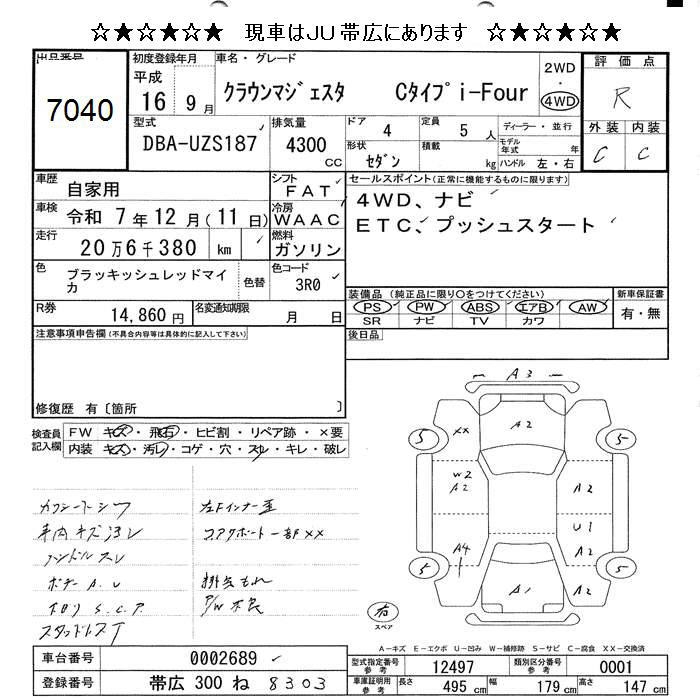 ☆★☆★☆★ 現車はJU帯広にあります ☆★☆★☆★
7040
初度登録年月 平成 16 9月
車名・グレード クラウンマジェスタ Cタイプ i-Four
2WD・4WD
評価点 R
外装 C 内装 C
型式 DBA-UZS187
排気量 4300 CC
ドア 4 定員 5 人
形状 セダン 積載 kg
ディーラー・並行
モデル年式 年
ハンドル 左・右
車歴 自家用
シフト FAT
車検 令和 7年12月(11日)
冷房 WAAC
走行 20万6千380 km
燃料 ガソリン
色 ブラッキッシュレッドマイカ 色替
色コード 3R0
R券 14,860円
名変通知期限 月 日
セールスポイント(正常に機能するものに限ります)
4WD、ナビ
ETC、プッシュスタート
装備品(純正品に限り○をつけてください)
PS PW ABS エアB AW
SR ナビ TV カワ
新車保証書 有・無
後日品
注意事項申告欄(不具合内容等は具体的に記入して下さい)
修復歴 有〔箇所 〕
検査員記入欄
FW キズ・飛石・ヒビ割・リペア跡・×要
内装 キズ・汚レ・コゲ・穴・スレ・キレ・破レ
ハンドルスレ
ボデー A.U
S.C.P.
左Fインナー歪
コアサポート一部XX
排気もれ
P/W不良
A3
A2
XX
W2
A2
A4
A2
U1
A2
A1
5
5
5
5
右
スペア
A-キズ E-エクボ U-凹み W-補修跡 S-サビ C-腐食 XX-交換済
車台番号 0002689
登録番号 帯広 300 ね 8303
型式指定番号 参考 12497
類別区分番号 参考 0001
車庫証明用 参考 長さ 495 cm 幅 179 cm 高さ 147 cm